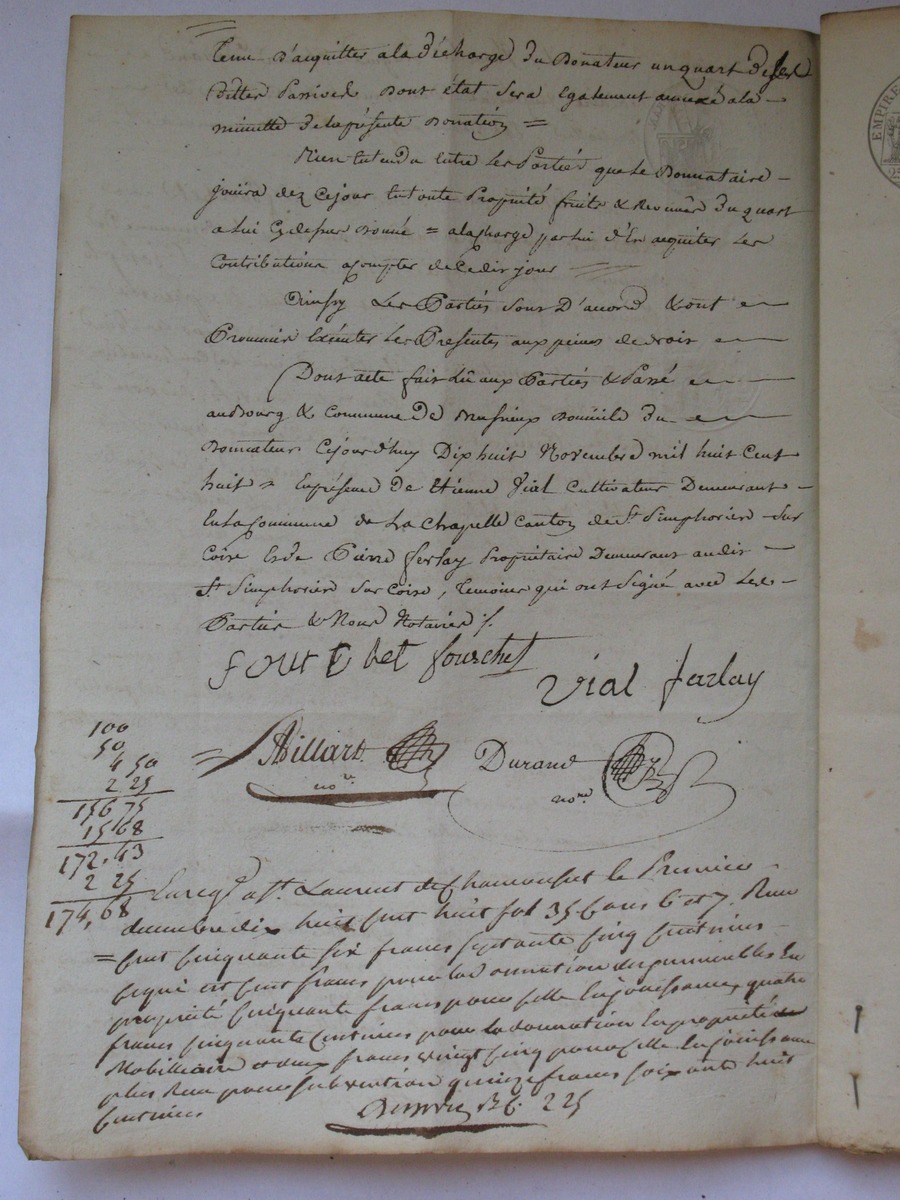 tenu d'acquitter a la décharge du Donateur un quart de ses
dettes Passives dont état sera également annexé a la
minutte de la présente donation =
Bien entendu entre les Parties que le Donnataire
jouira dez ce jour en toute Propriété fruits & Revenus du quart
a lui cy dessus donné = a la charge par lui d'En acquiter les
Contributions a compter de ce dit jour
Ainsy les Parties sont D'accord & ont
Promis exécuter les Présentes aux peines de droit
Dont acte fait lû aux Parties & Passé
au Bourg & Commune de domicile du
Donnateur Cejourd'huy Dix huit Novembre mil huit Cent
huit = En présence de Etienne Vial Cultivateur Demeurant
En la Commune de La Chapelle Canton de St Simphorien Sur
Coire & de Pierre ferlay Propriétaire Demeurant audit
St Simphorien Sur Coire, témoins qui ont Signé avec les
Parties & Nous Notaires ./.
fourchet
Vial ferlay
Billard
nore
Durand
nore
100
50
4 50
2 25
156 75
15 68
172,43
2 25
174,68
Enregé a St Laurent de Chamousset le Premier
décembre dix huit cent huit fol 35 cases 6 et 7. Reçu
= cent cinquante six francs septante cinq centimes
ce qui est cent francs pour la donation des immeubles En
propriété cinquante francs pour celle En jouissance, quatre
francs cinquante centimes pour la donation En propriété du
Mobilliaire et deux francs vingt cinq pour celle En jouissance
plus Reçu pour subvention quinze francs soixante huit
centimes
2 25